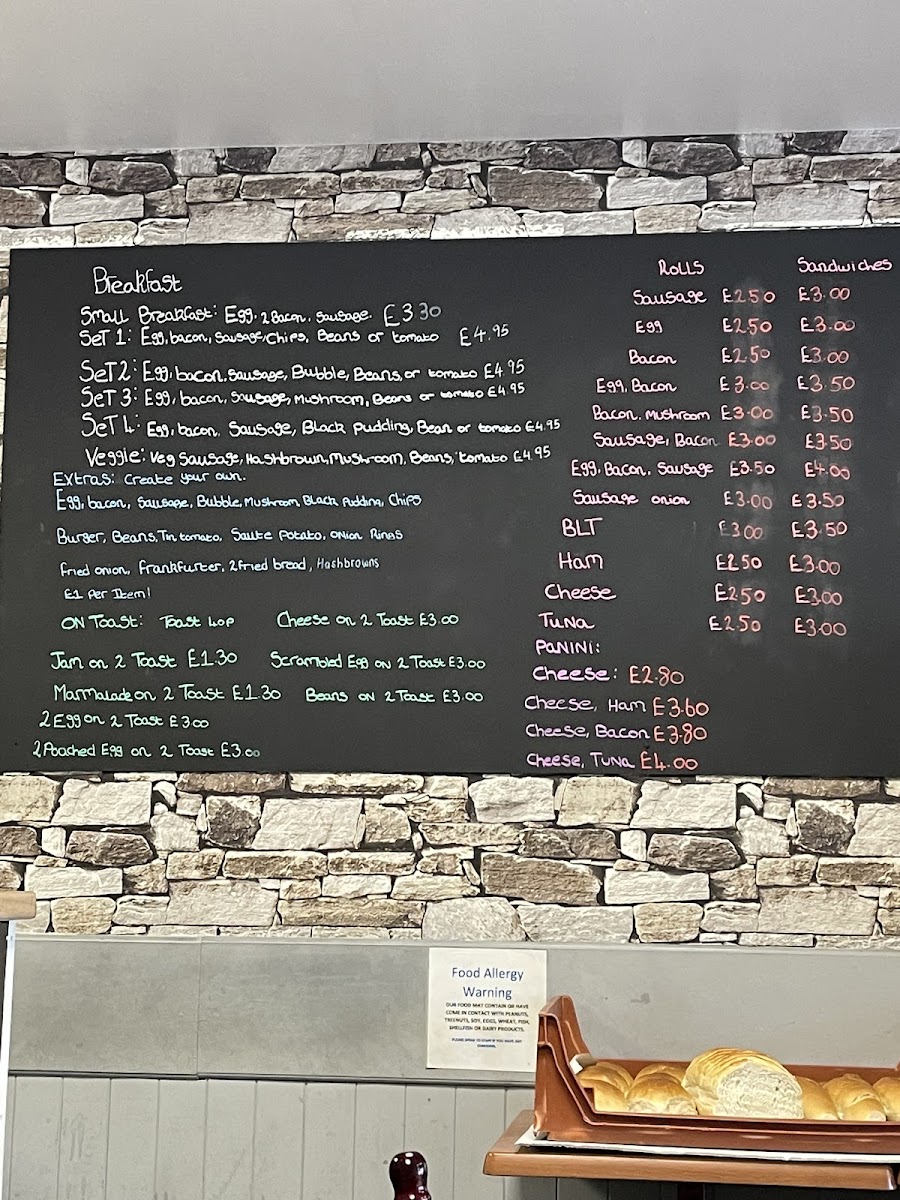 Breakfast
Small Breakfast: Egg, 2 Bacon, Sausage. £3.30
SeT 1: Egg, bacon, Sausage, Chips, Beans or tomato £4.95
SeT 2: Egg, bacon, Sausage, Bubble, Beans, or tomato £4.95
SeT 3: Egg, bacon, Sausage, Mushroom, Beans or tomato £4.95
SeT 4: Egg, bacon, Sausage, Black Pudding, Bean or tomato £4.95
Veggie: Veg Sausage, Hashbrown, Mushroom, Beans, tomato £4.95
Extras: Create your own.
Egg, bacon, Sausage, Bubble, Mushroom, Black Pudding, Chips
Burger, Beans, Tin tomato, Saute Potato, Onion Rings
Fried onion, Frankfurter, 2 fried bread, Hashbrowns
£1 Per Item!
ON Toast: Toast 40P Cheese on 2 Toast £3.00
Jam on 2 Toast £1.30 Scrambled Egg ON 2 Toast £3.00
Marmalade on 2 Toast £1.30 Beans ON 2 Toast £3.00
2 Egg on 2 Toast £3.00
2 Poached Egg on 2 Toast £3.00
ROLLS Sandwiches
Sausage £2.50 £3.00
Egg £2.50 £3.00
Bacon £2.50 £3.00
Egg, Bacon £3.00 £3.50
Bacon, Mushroom £3.00 £3.50
Sausage, Bacon £3.00 £3.50
Egg, Bacon, Sausage £3.50 £4.00
Sausage onion £3.00 £3.50
BLT £3.00 £3.50
Ham £2.50 £3.00
Cheese £2.50 £3.00
Tuna £2.50 £3.00
PANINI:
Cheese: £2.80
Cheese, Ham £3.60
Cheese, Bacon £3.80
Cheese, Tuna £4.00
Food Allergy
Warning
OUR FOOD MAY CONTAIN OR HAVE
COME IN CONTACT WITH PEANUTS,
TREENUTS, SOY, EGGS, WHEAT, FISH,
SHELLFISH OR DAIRY PRODUCTS.
PLEASE SPEAK TO STAFF IF YOU HAVE ANY
CONCERNS.